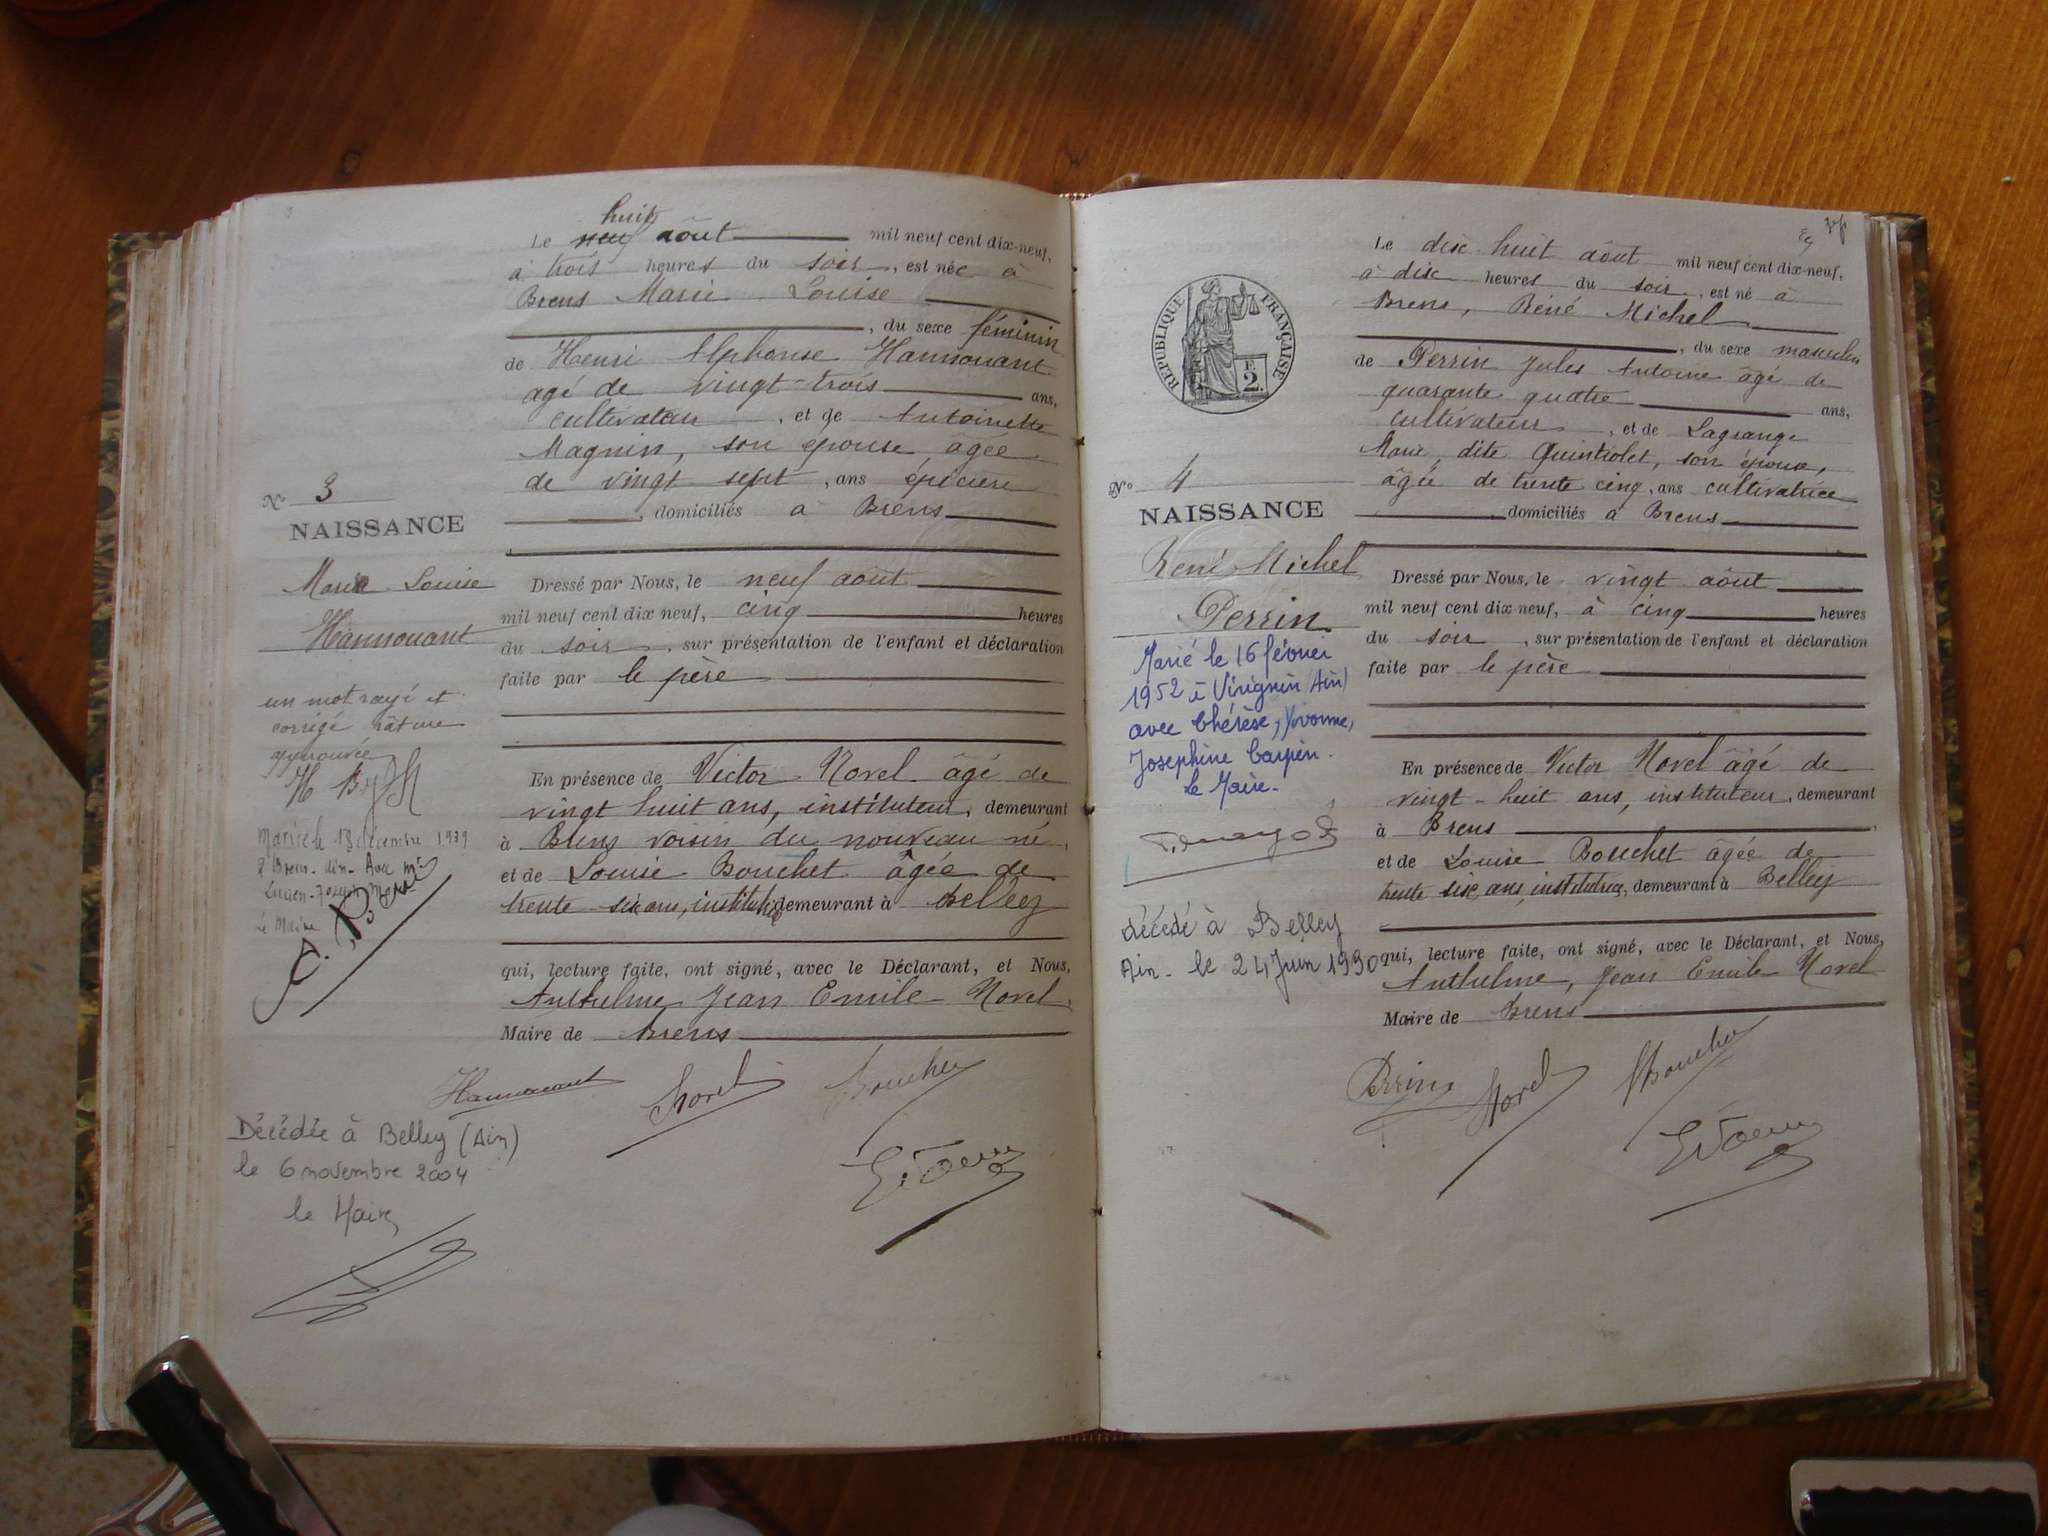 huit
Le neuf août mil neuf cent dix-neuf,
à trois heures du soir, est née à
Brens Marie Louise
, du sexe féminin
de Henri Alphonse Hannouant
agé de vingt-trois ans,
cultivateur, et de Antoinette
Magnin, son épouse, âgée
de vingt sept, ans épicière
, domiciliés à Brens
N° 3
NAISSANCE
Marie Louise
Hannouant
un mot rayé et
corrigé rature
approuvée
Dressé par Nous, le neuf août
mil neuf cent dix neuf, cinq heures
du soir, sur présentation de l'enfant et déclaration
faite par le père
En présence de Victor Norel âgé de
vingt huit ans, instituteur, demeurant
à Brens voisin du nouveau né,
et de Louise Bouchet âgée de
trente six ans, institutrice demeurant à Belley
qui, lecture faite, ont signé, avec le Déclarant, et Nous,
Anthelme Jean Emile Norel
Maire de Brens
Mariée le 18 décembre 1939
à Brens - Ain - Avec Mr
Lucien-Joseph
Le Maire
Hannouant Norel Bouchet
Décédée à Belley (Ain)
le 6 novembre 2004
le Maire
Le dix huit août mil neuf cent dix-neuf,
à dix heures du soir, est né à
Brens, Réné Michel
, du sexe masculin
de Perrin Jules Antoine âgé de
quarante quatre ans,
cultivateur, et de Lagrange
Marie, dite Quintiolet, son épouse,
âgée de trente cinq, ans cultivatrice
, domiciliés à Brens
RÉPUBLIQUE FRANÇAISE
2 F.
N° 4
NAISSANCE
René Michel
Perrin
Marié le 16 février
1952 à Virignin (Ain)
avec Thérèse, Yvonne,
Josephine Carpin.
le Maire.
décédé à Belley
Ain - le 24 Juin 1990
Dressé par Nous, le vingt août
mil neuf cent dix-neuf, à cinq heures
du soir, sur présentation de l'enfant et déclaration
faite par le père
En présence de Victor Norel âgé de
vingt-huit ans, instituteur, demeurant
à Brens
et de Louise Bouchet âgée de
trente six ans, institutrice, demeurant à Belley
qui, lecture faite, ont signé, avec le Déclarant, et Nous,
Anthelme, Jean Emile Norel
Maire de Brens
Perrin Norel Bouchet